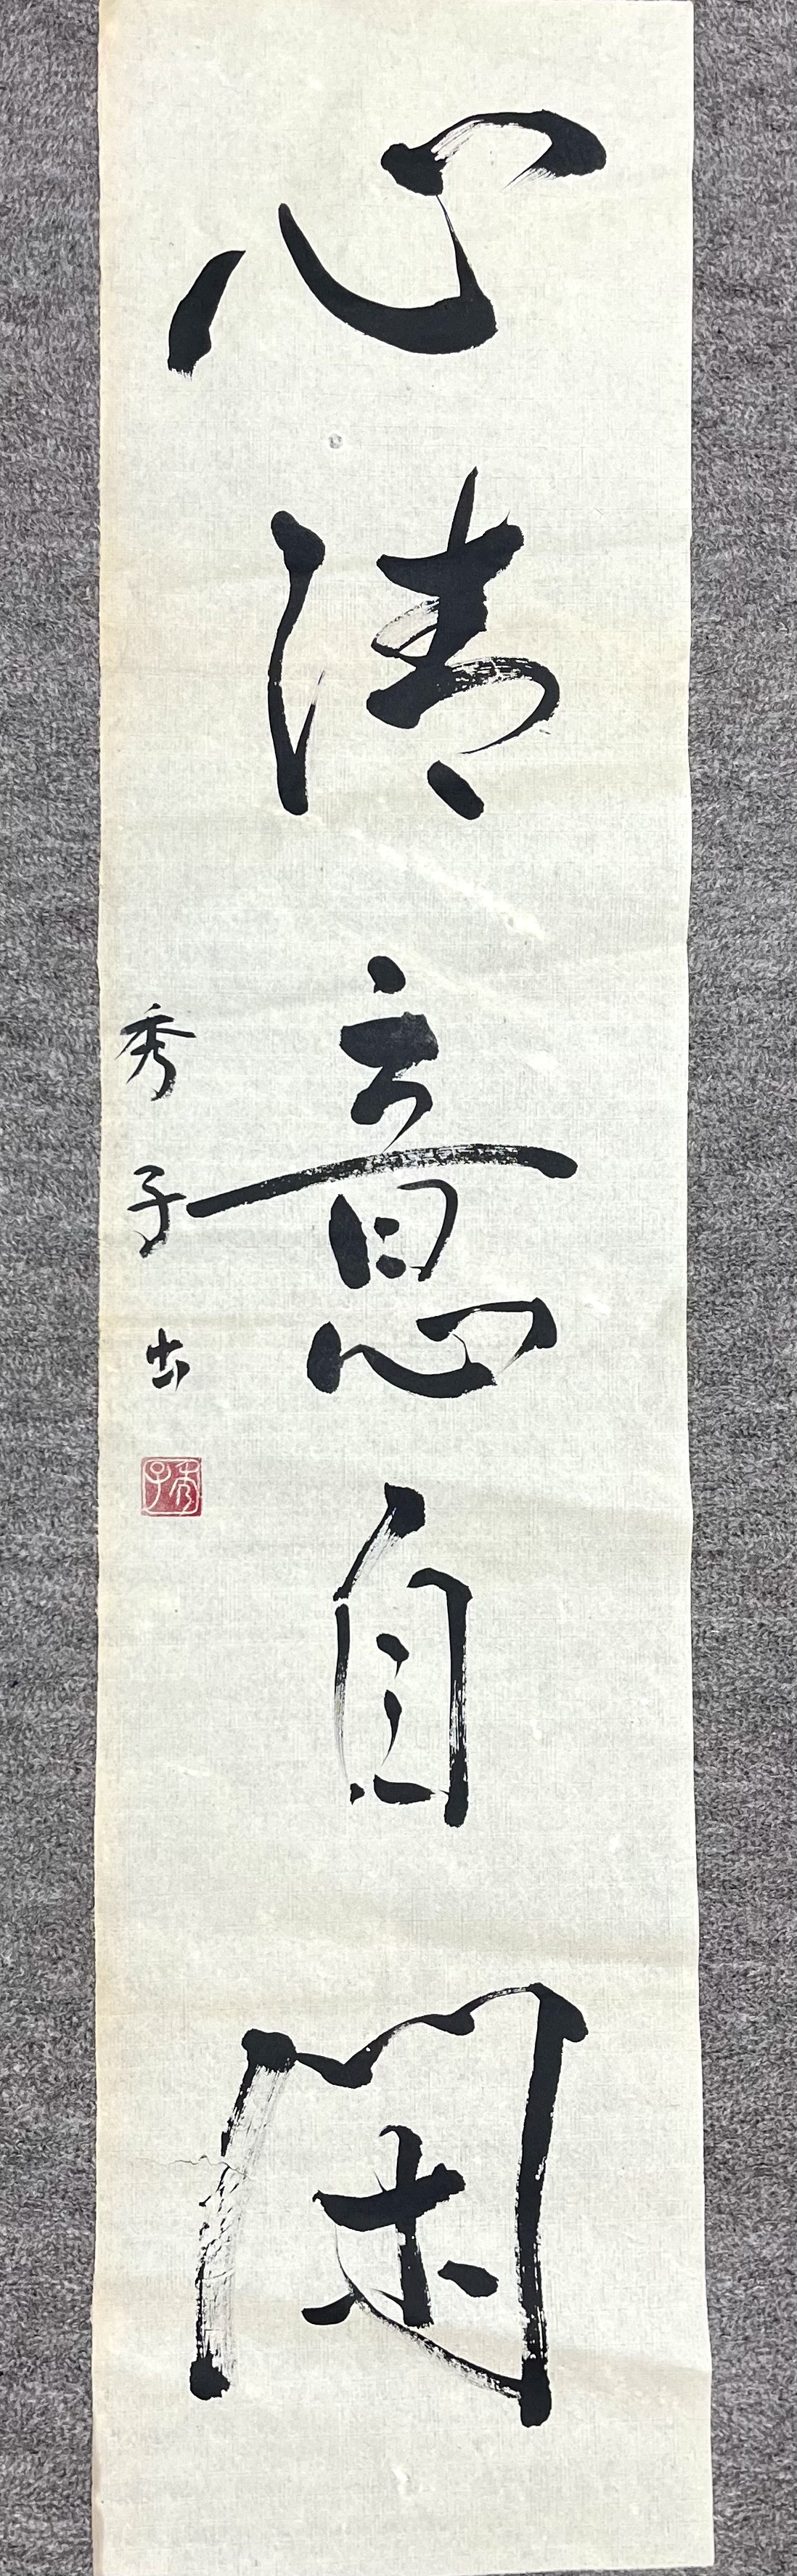 心清意自閑
秀子书
秀子